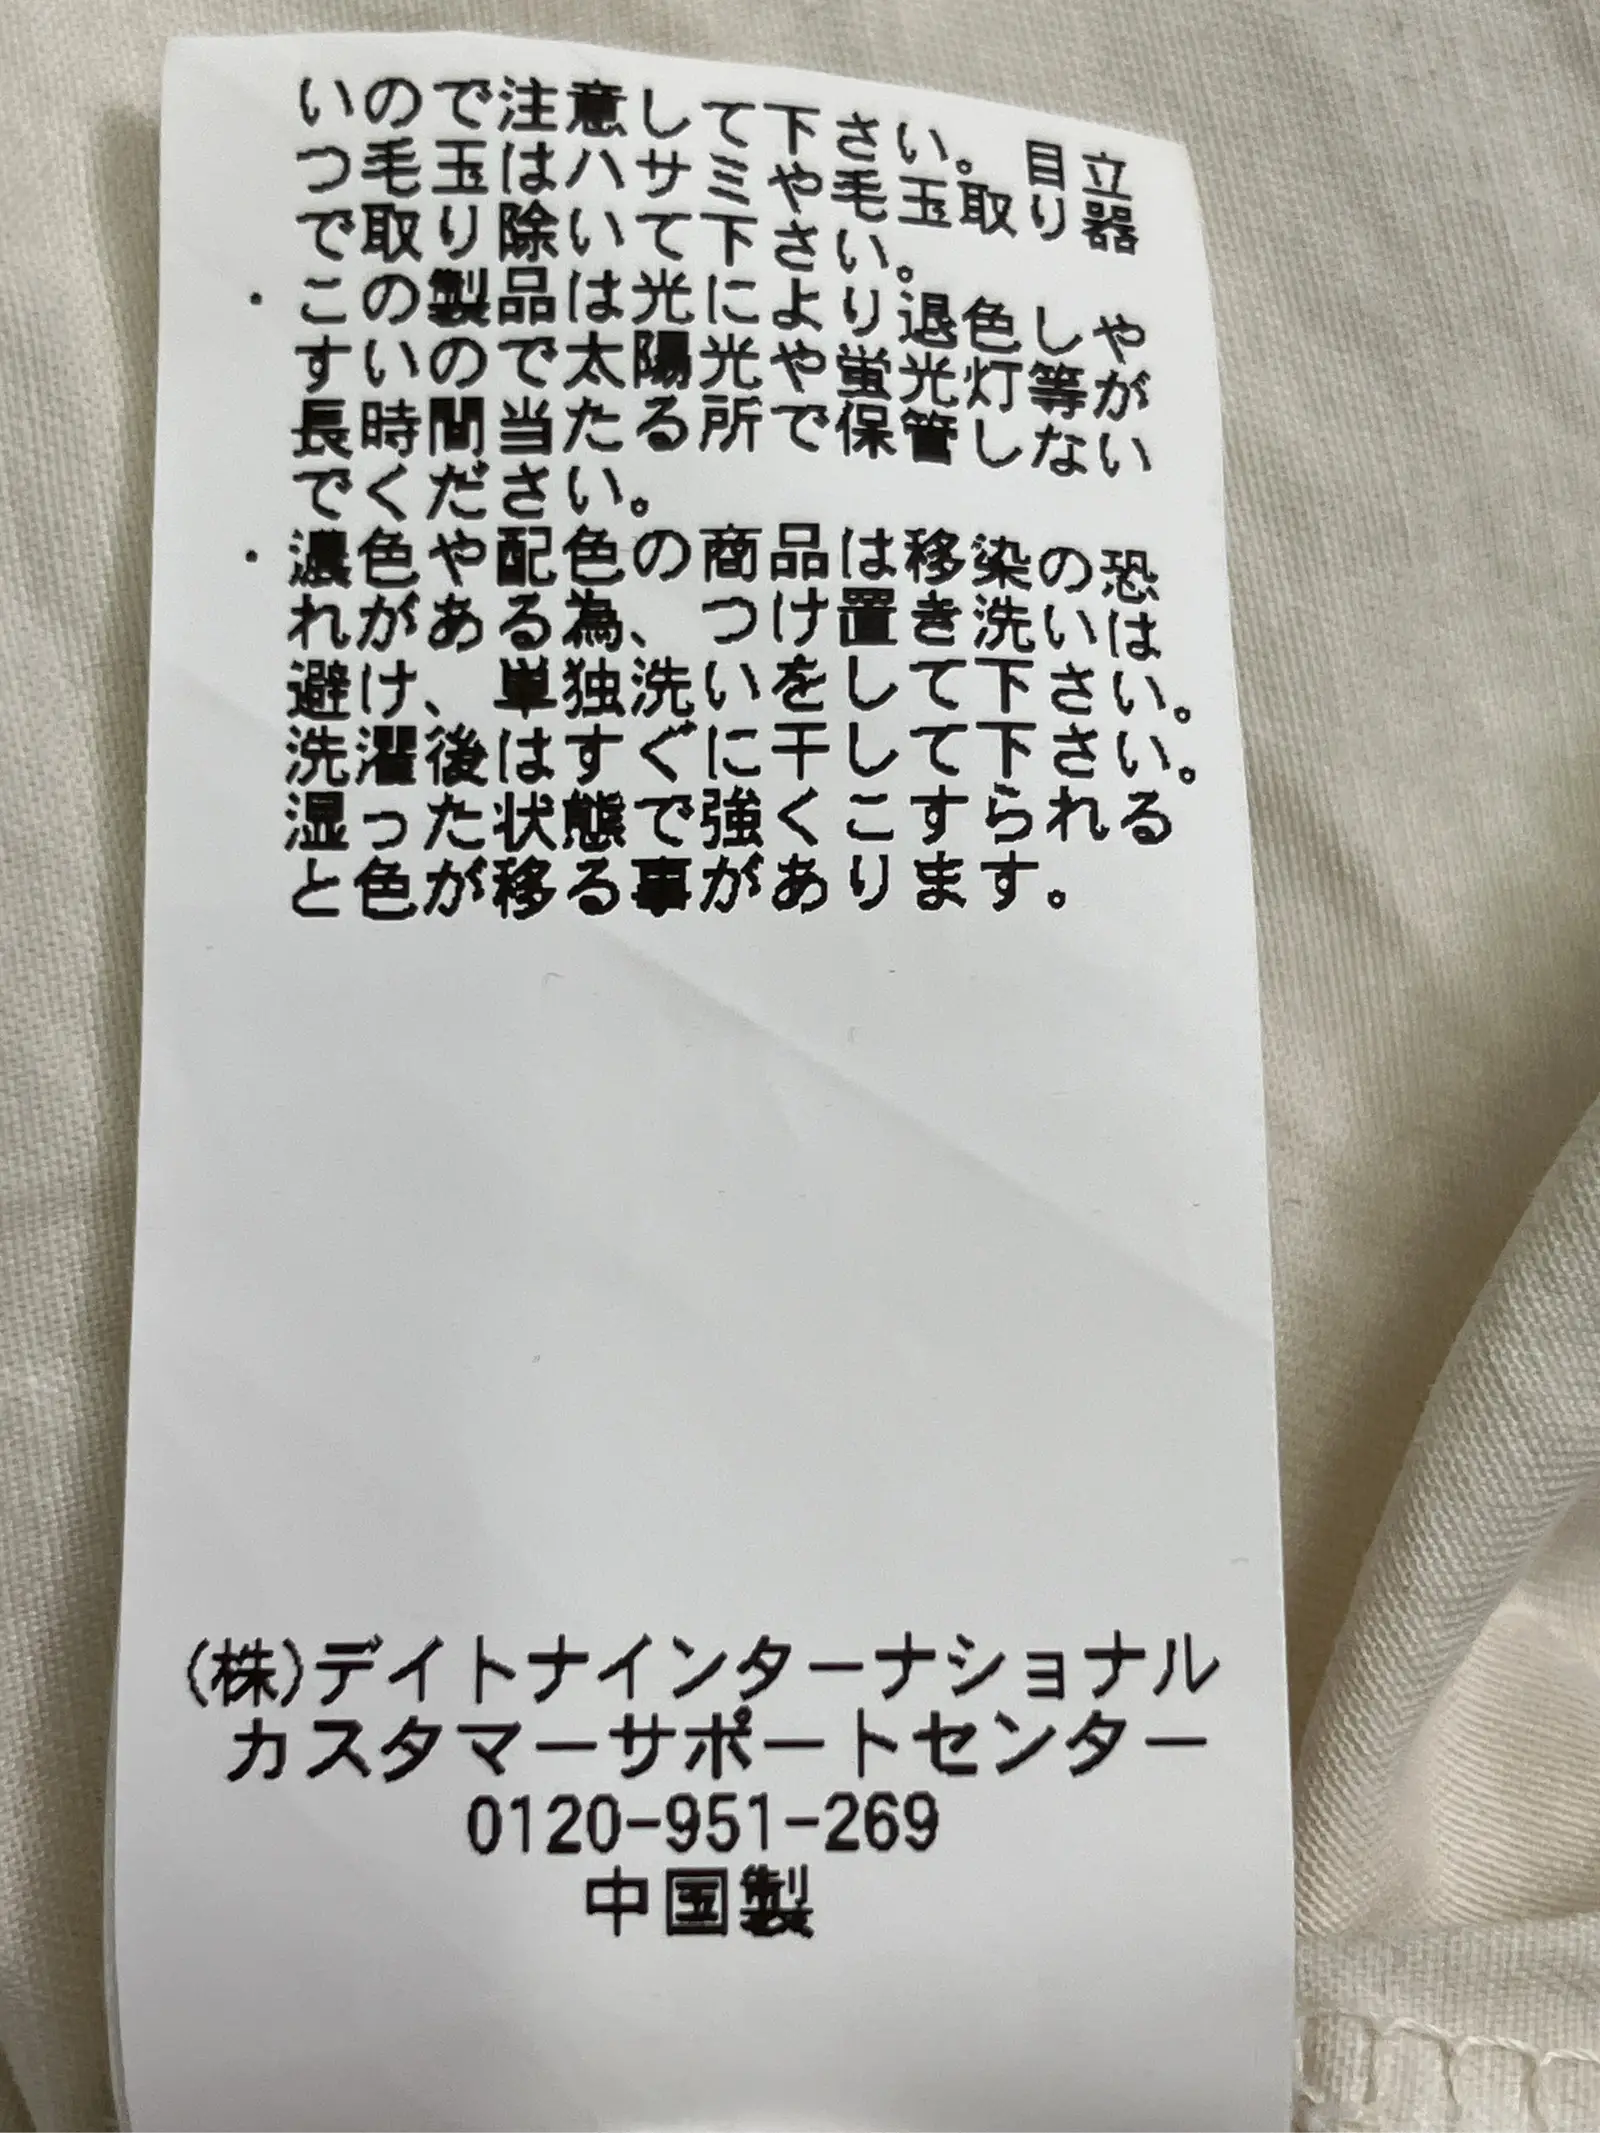 いので注意して下さい。目立
つ毛玉はハサミや毛玉取り器
で取り除いて下さい。
・この製品は光により退色しや
すいので太陽光や蛍光灯等が
長時間当たる所で保管しない
でください。
・濃色や配色の商品は移染の恐
れがある為、つけ置き洗いは
避け、単独洗いをして下さい。
洗濯後はすぐに干して下さい。
湿った状態で強くこすられる
と色が移る事があります。
(株)デイトナインターナショナル
カスタマーサポートセンター
0120-951-269
中国製